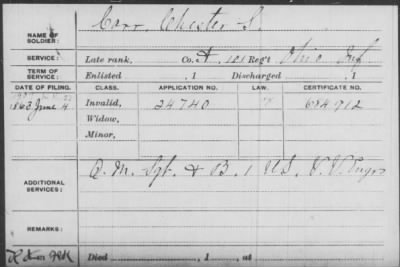 NAME OF SOLDIER: Carr, Chester S.
SERVICE: Late rank, Co. A, 101 Reg't Ohio Inf
TERM OF SERVICE: Enlisted , 1 Discharged , 1
DATE OF FILING. CLASS. APPLICATION NO. LAW. CERTIFICATE NO.
1863 June 4 Invalid, 24740 684712
Widow,
Minor,
ADDITIONAL SERVICES: Q. M. Sgt. & B. 1 U.S. V. V. Engrs
REMARKS:
Died , 1 , at